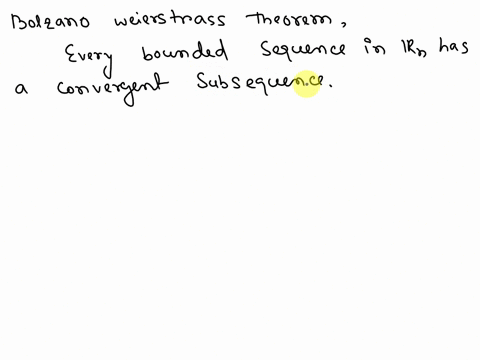 Bolzano weierstrass Theorem,
Every bounded Sequence in IRn has
a convergent Subsequence.